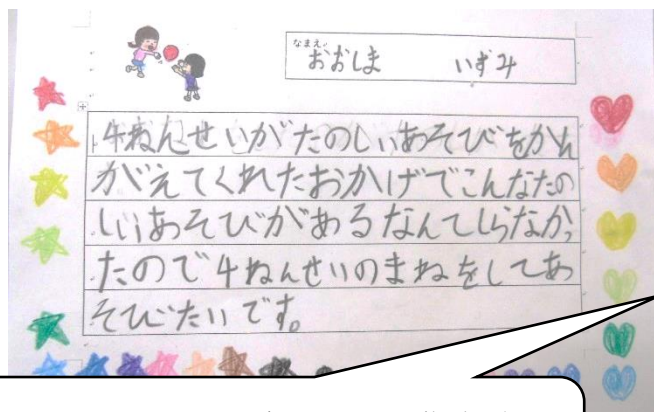 なまえ
おおしま いずみ
4ねんせいがたのしいあそびをかん
がえてくれたおかげでこんなたの
しいあそびがあるなんてしらなかっ
たので4ねんせいのまねをしてあ
そびたいです。